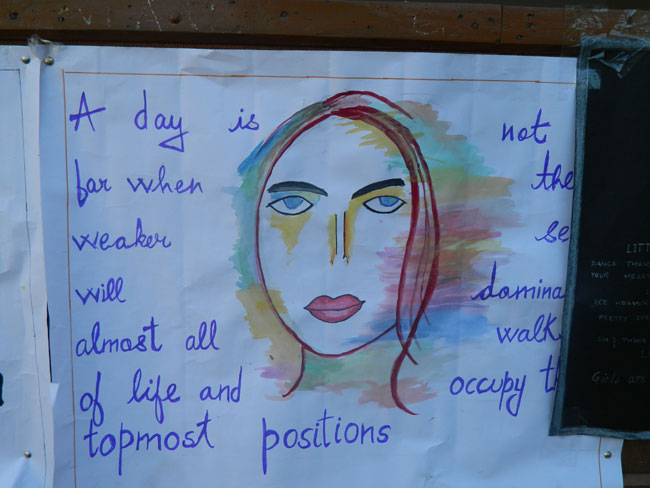 A day is not
far when the
weaker se
will domina
almost all walk
of life and occupy th
topmost positions
LITT
Girls are